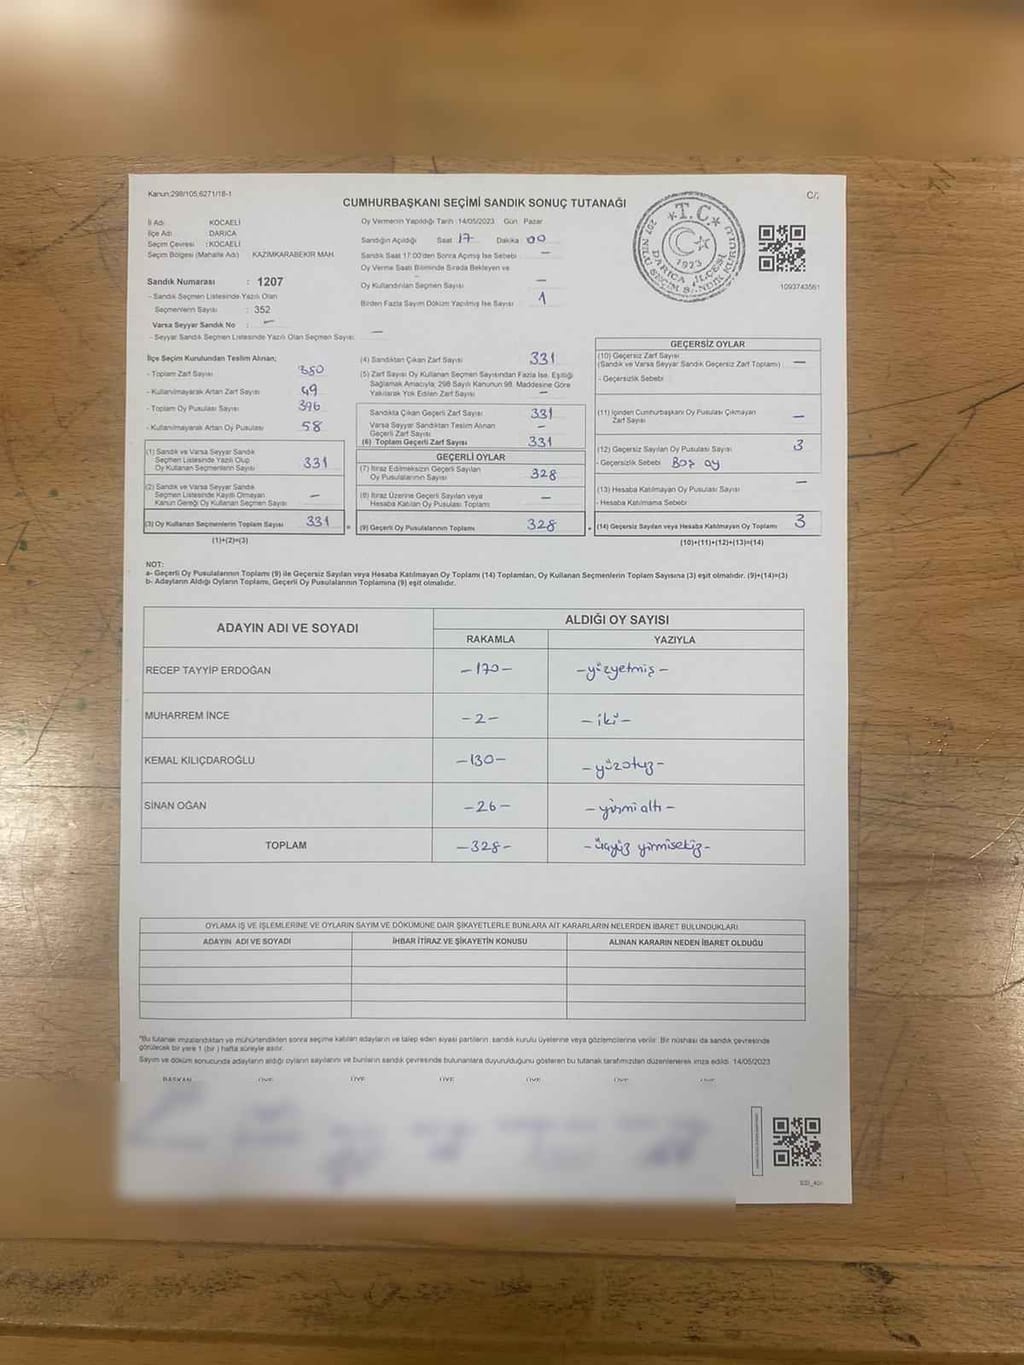 Kanun:298/105,6271/18-1
CUMHURBAŞKANI SEÇİMİ SANDIK SONUÇ TUTANAĞI
İl Adı : KOCAELİ
İlçe Adı : DARICA
Seçim Çevresi : KOCAELİ
Seçim Bölgesi (Mahalle Adı) KAZIMKARABEKİR MAH.
Sandık Numarası : 1207
- Sandık Seçmen Listesinde Yazılı Olan
Seçmenlerin Sayısı : 352
Varsa Seyyar Sandık No : -
- Seyyar Sandık Seçmen Listesinde Yazılı Olan Seçmen Sayısı: -
Oy Vermenin Yapıldığı Tarih :14/05/2023 Gün Pazar
Sandığın Açıldığı Saat 17 Dakika 00
Sandık Saat 17:00'den Sonra Açılmış İse Sebebi -
Oy Verme Saati Bitiminde Sırada Bekleyen ve
Oy Kullandırılan Seçmen Sayısı -
Birden Fazla Sayım Döküm Yapılmış İse Sayısı 1
T.C.
DARICA İLÇESİ
1923
1093743561
İlçe Seçim Kurulundan Teslim Alınan;
- Toplam Zarf Sayısı 380
- Kullanılmayarak Artan Zarf Sayısı 49
- Toplam Oy Pusulası Sayısı 396
- Kullanılmayarak Artan Oy Pusulası 58
(1) Sandık ve Varsa Seyyar Sandık
Seçmen Listesinde Yazılı Olup
Oy Kullanan Seçmenlerin Sayısı 331
(2) Sandık ve Varsa Seyyar Sandık
Seçmen Listesinde Kayıtlı Olmayan
Kanun Gereği Oy Kullanan Seçmen Sayısı -
(3) Oy Kullanan Seçmenlerin Toplam Sayısı 331
(1)+(2)=(3)
(4) Sandıktan Çıkan Zarf Sayısı 331
(5) Zarf Sayısı Oy Kullanan Seçmen Sayısından Fazla İse, Eşitliği
Sağlamak Amacıyla, 298 Sayılı Kanunun 98. Maddesine Göre
Yakılarak Yok Edilen Zarf Sayısı -
Sandıkta Çıkan Geçerli Zarf Sayısı 331
Varsa Seyyar Sandıktan Teslim Alınan
Geçerli Zarf Sayısı -
(6) Toplam Geçerli Zarf Sayısı 331
GEÇERLİ OYLAR
(7) İtiraz Edilmeksizin Geçerli Sayılan
Oy Pusulalarının Sayısı 328
(8) İtiraz Üzerine Geçerli Sayılan veya
Hesaba Katılan Oy Pusulası Toplamı -
(9) Geçerli Oy Pusulalarının Toplamı 328
GEÇERSİZ OYLAR
(10) Geçersiz Zarf Sayısı
(Sandık ve Varsa Seyyar Sandık Geçersiz Zarf Toplamı) -
- Geçersizlik Sebebi
(11) İçinden Cumhurbaşkanı Oy Pusulası Çıkmayan
Zarf Sayısı -
(12) Geçersiz Sayılan Oy Pusulası Sayısı 3
- Geçersizlik Sebebi Boş oy
(13) Hesaba Katılmayan Oy Pusulası Sayısı -
- Hesaba Katılmama Sebebi
(14) Geçersiz Sayılan veya Hesaba Katılmayan Oy Toplamı 3
(10)+(11)+(12)+(13)=(14)
NOT:
a- Geçerli Oy Pusulalarının Toplamı (9) ile Geçersiz Sayılan veya Hesaba Katılmayan Oy Toplamı (14) Toplamları, Oy Kullanan Seçmenlerin Toplam Sayısına (3) eşit olmalıdır. (9)+(14)=(3)
b- Adayların Aldığı Oyların Toplamı, Geçerli Oy Pusulalarının Toplamına (9) eşit olmalıdır.
ADAYIN ADI VE SOYADI ALDIĞI OY SAYISI
RAKAMLA YAZIYLA
RECEP TAYYİP ERDOĞAN -170- -yüzyetmiş-
MUHARREM İNCE -2- -iki-
KEMAL KILIÇDAROĞLU -130- -yüzotuz-
SİNAN OĞAN -26- -yirmialtı-
TOPLAM -328- -üçyüz yirmisekiz-
OYLAMA İŞ VE İŞLEMLERİNE VE OYLARIN SAYIM VE DÖKÜMÜNE DAİR ŞİKAYETLERLE BUNLARA AİT KARARLARIN NELERDEN İBARET BULUNDUKLARI
ADAYIN ADI VE SOYADI İHBAR İTİRAZ VE ŞİKAYETİN KONUSU ALINAN KARARIN NEDEN İBARET OLDUĞU
*Bu tutanak imzalandıktan ve mühürlendikten sonra seçime katılan adayların ve talep eden siyasi partilerin sandık kurulu üyelerine veya gözlemcilerine verilir. Bir nüshası da sandık çevresinde
görülecek bir yere 1 (bir) hafta süreyle asılır.
Sayım ve döküm sonucunda adayların aldığı oyların sayılarını ve bunların sandık çevresinde bulunanlara duyurulduğunu gösteren bu tutanak tarafımızdan düzenlenerek imza edildi. 14/05/2023
BAŞKAN ÜYE ÜYE ÜYE ÜYE ÜYE ÜYE